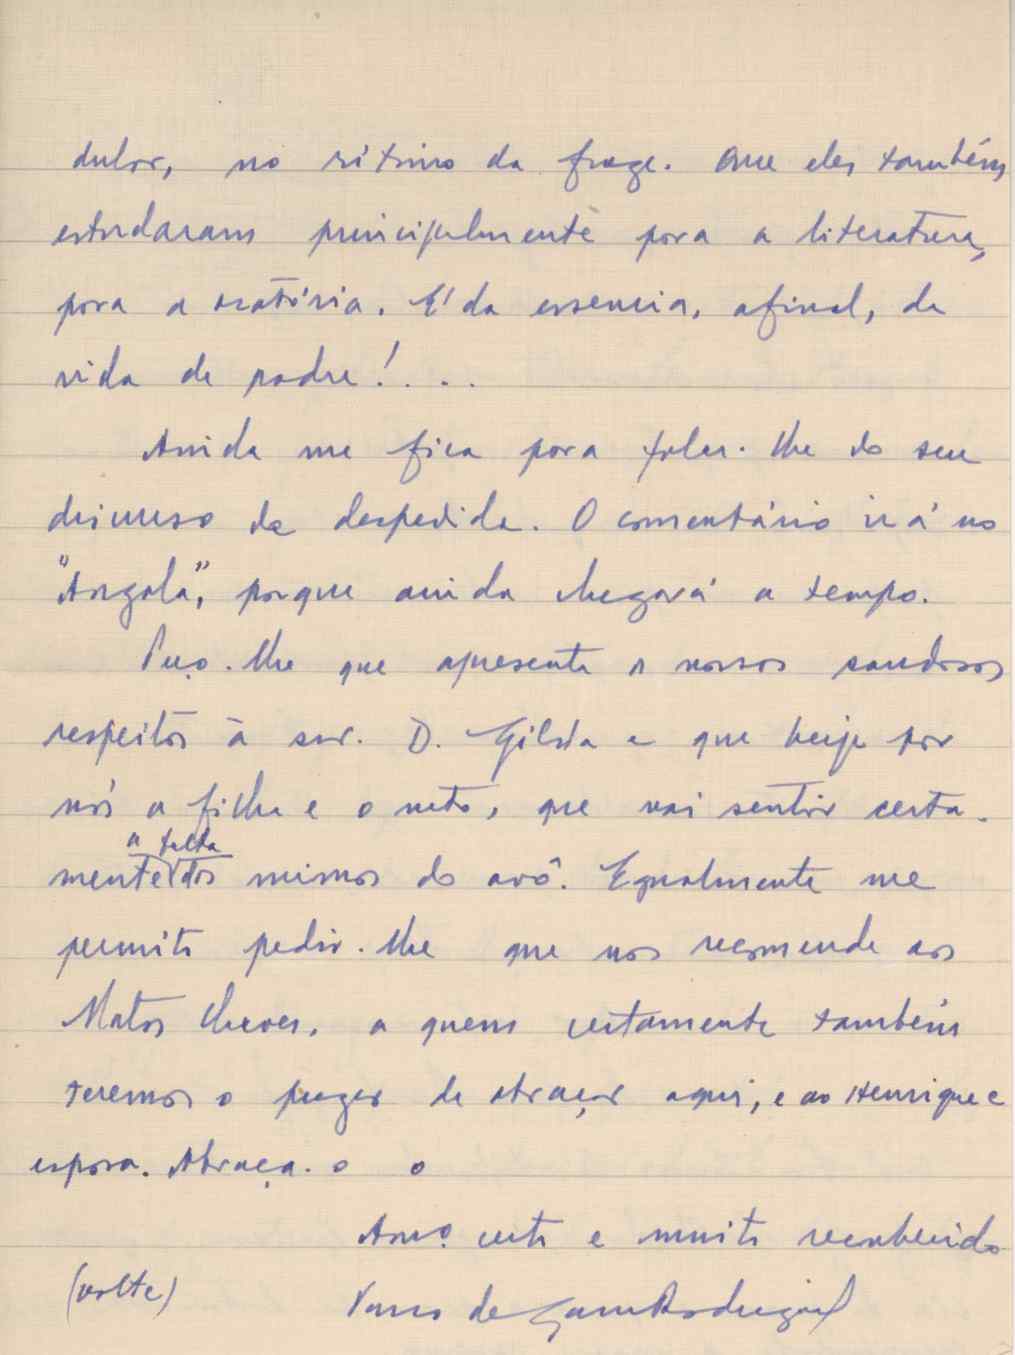 dular, no ritmo da frase. Que eles também
estudaram principalmente para a literatura,
para a oratória. É da essencia, afinal, da
vida de padre!...
Ainda me fica para falar-lhe do seu
discurso de despedida. O comentário irá no
"Angola", porque ainda chegará a tempo.
Peço-lhe que apresente os nossos saudosos
respeitos à snr. D. Gilda e que beije por
nós a filha e o neto, que vai sentir certa-
a falta
mente dos mimos do avô. Egualmente me
permito pedir-lhe que nos recomende aos
Matos Chaves, a quem certamente também
teremos o prazer de abraçar aqui, e ao Henrique e
esposa. Abraça-o o
Amo. certo e muito reconhecido
(volte)
Vasco de Gama Rodrigues